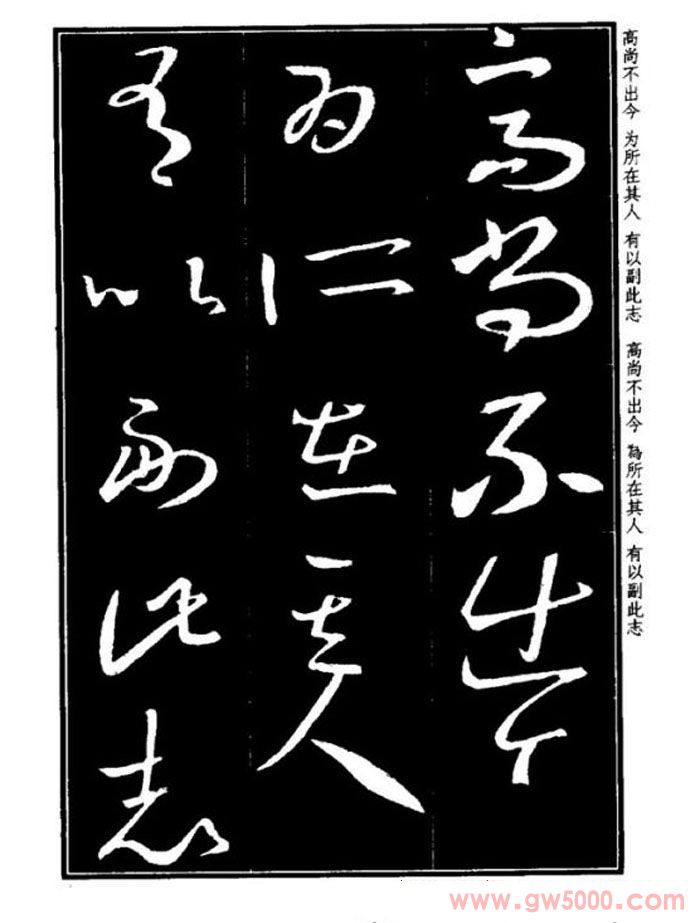 高尚不出今
为所在其人
有以副此志
高尚不出今 为所在其人 有以副此志 高尚不出今 為所在其人 有以副此志
www.gw5000.com